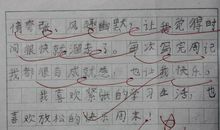 情奇强、风趣幽默，让我觉得时
间很快就溜走了。每次写完周记
我都很自成就感，也让我快乐，
我喜欢紧张的学习生活，也
喜欢放松的快乐周末。